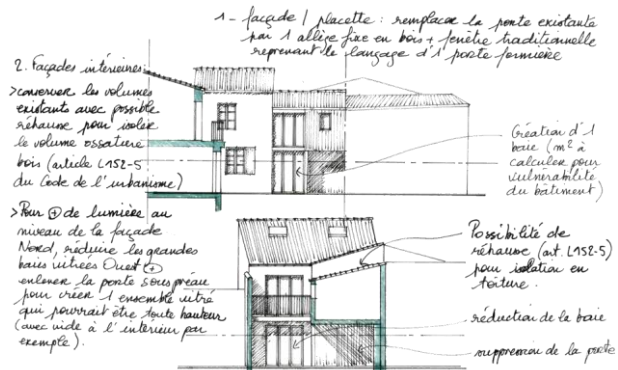 1 - façade / placette : remplacer la porte existante
par 1 allège fixe en bois + fenêtre traditionnelle
reprenant le langage d'1 porte fermière
2. Façades intérieures
> conserver les volumes
existants avec possible
réhausse pour isoler
le volume ossature
bois (article L152-5
du Code de l'urbanisme)
> Pour ⊕ de lumière au
niveau de la façade
Nord, réduire les grandes
baies vitrées Ouest ⊕
enlever la porte sous préau
pour créer 1 ensemble vitré
qui pourrait être toute hauteur
(avec vide à l'intérieur par
exemple).
Création d'1
baie (m² à
calculer pour
vulnérabilité
du bâtiment)
Possibilité de
réhausse (art. L152-5)
pour isolation en
toiture.
réduction de la baie
suppression de la porte